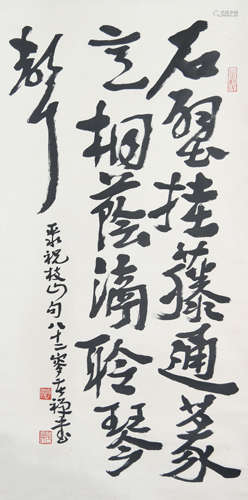 石壁挂藤通篆
意桐荫滴聆琴
声
录祝枝山句八十二叟